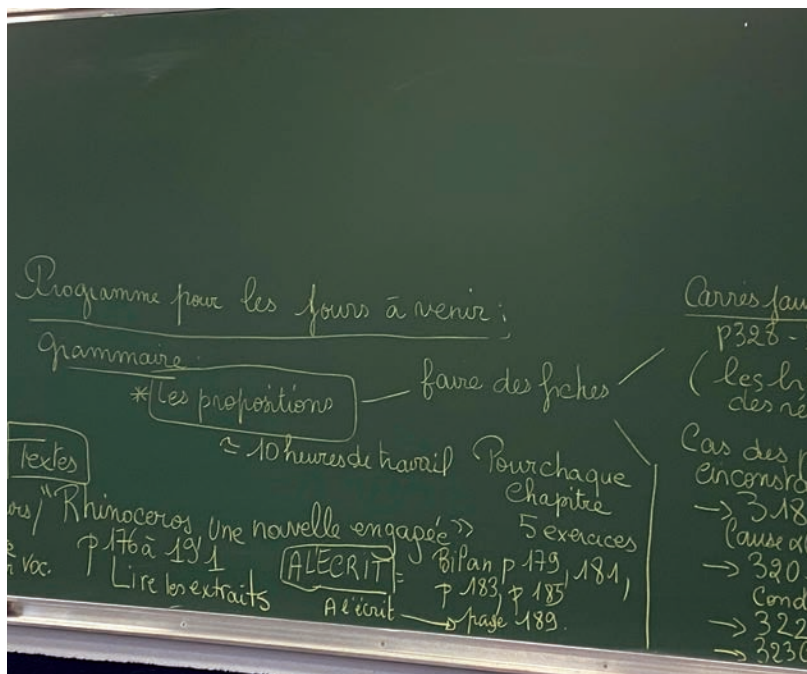 Programme pour les jours à venir :
grammaire.
* Les propositions — faire des fiches
≃ 10 heures de travail
Pour chaque
chapitre
5 exercices
Textes
"Rhinoceros, une nouvelle engagée"
p 176 à 191
Lire les extraits
voc.
A L'ECRIT = Bilan p 179, 181,
p 183, p 185
A l'écrit → page 189.
Carrés jau
p328 -
(les
des
Cas des
circonst
→ 318
Cause
→ 320
Cond
→ 322
→ 323